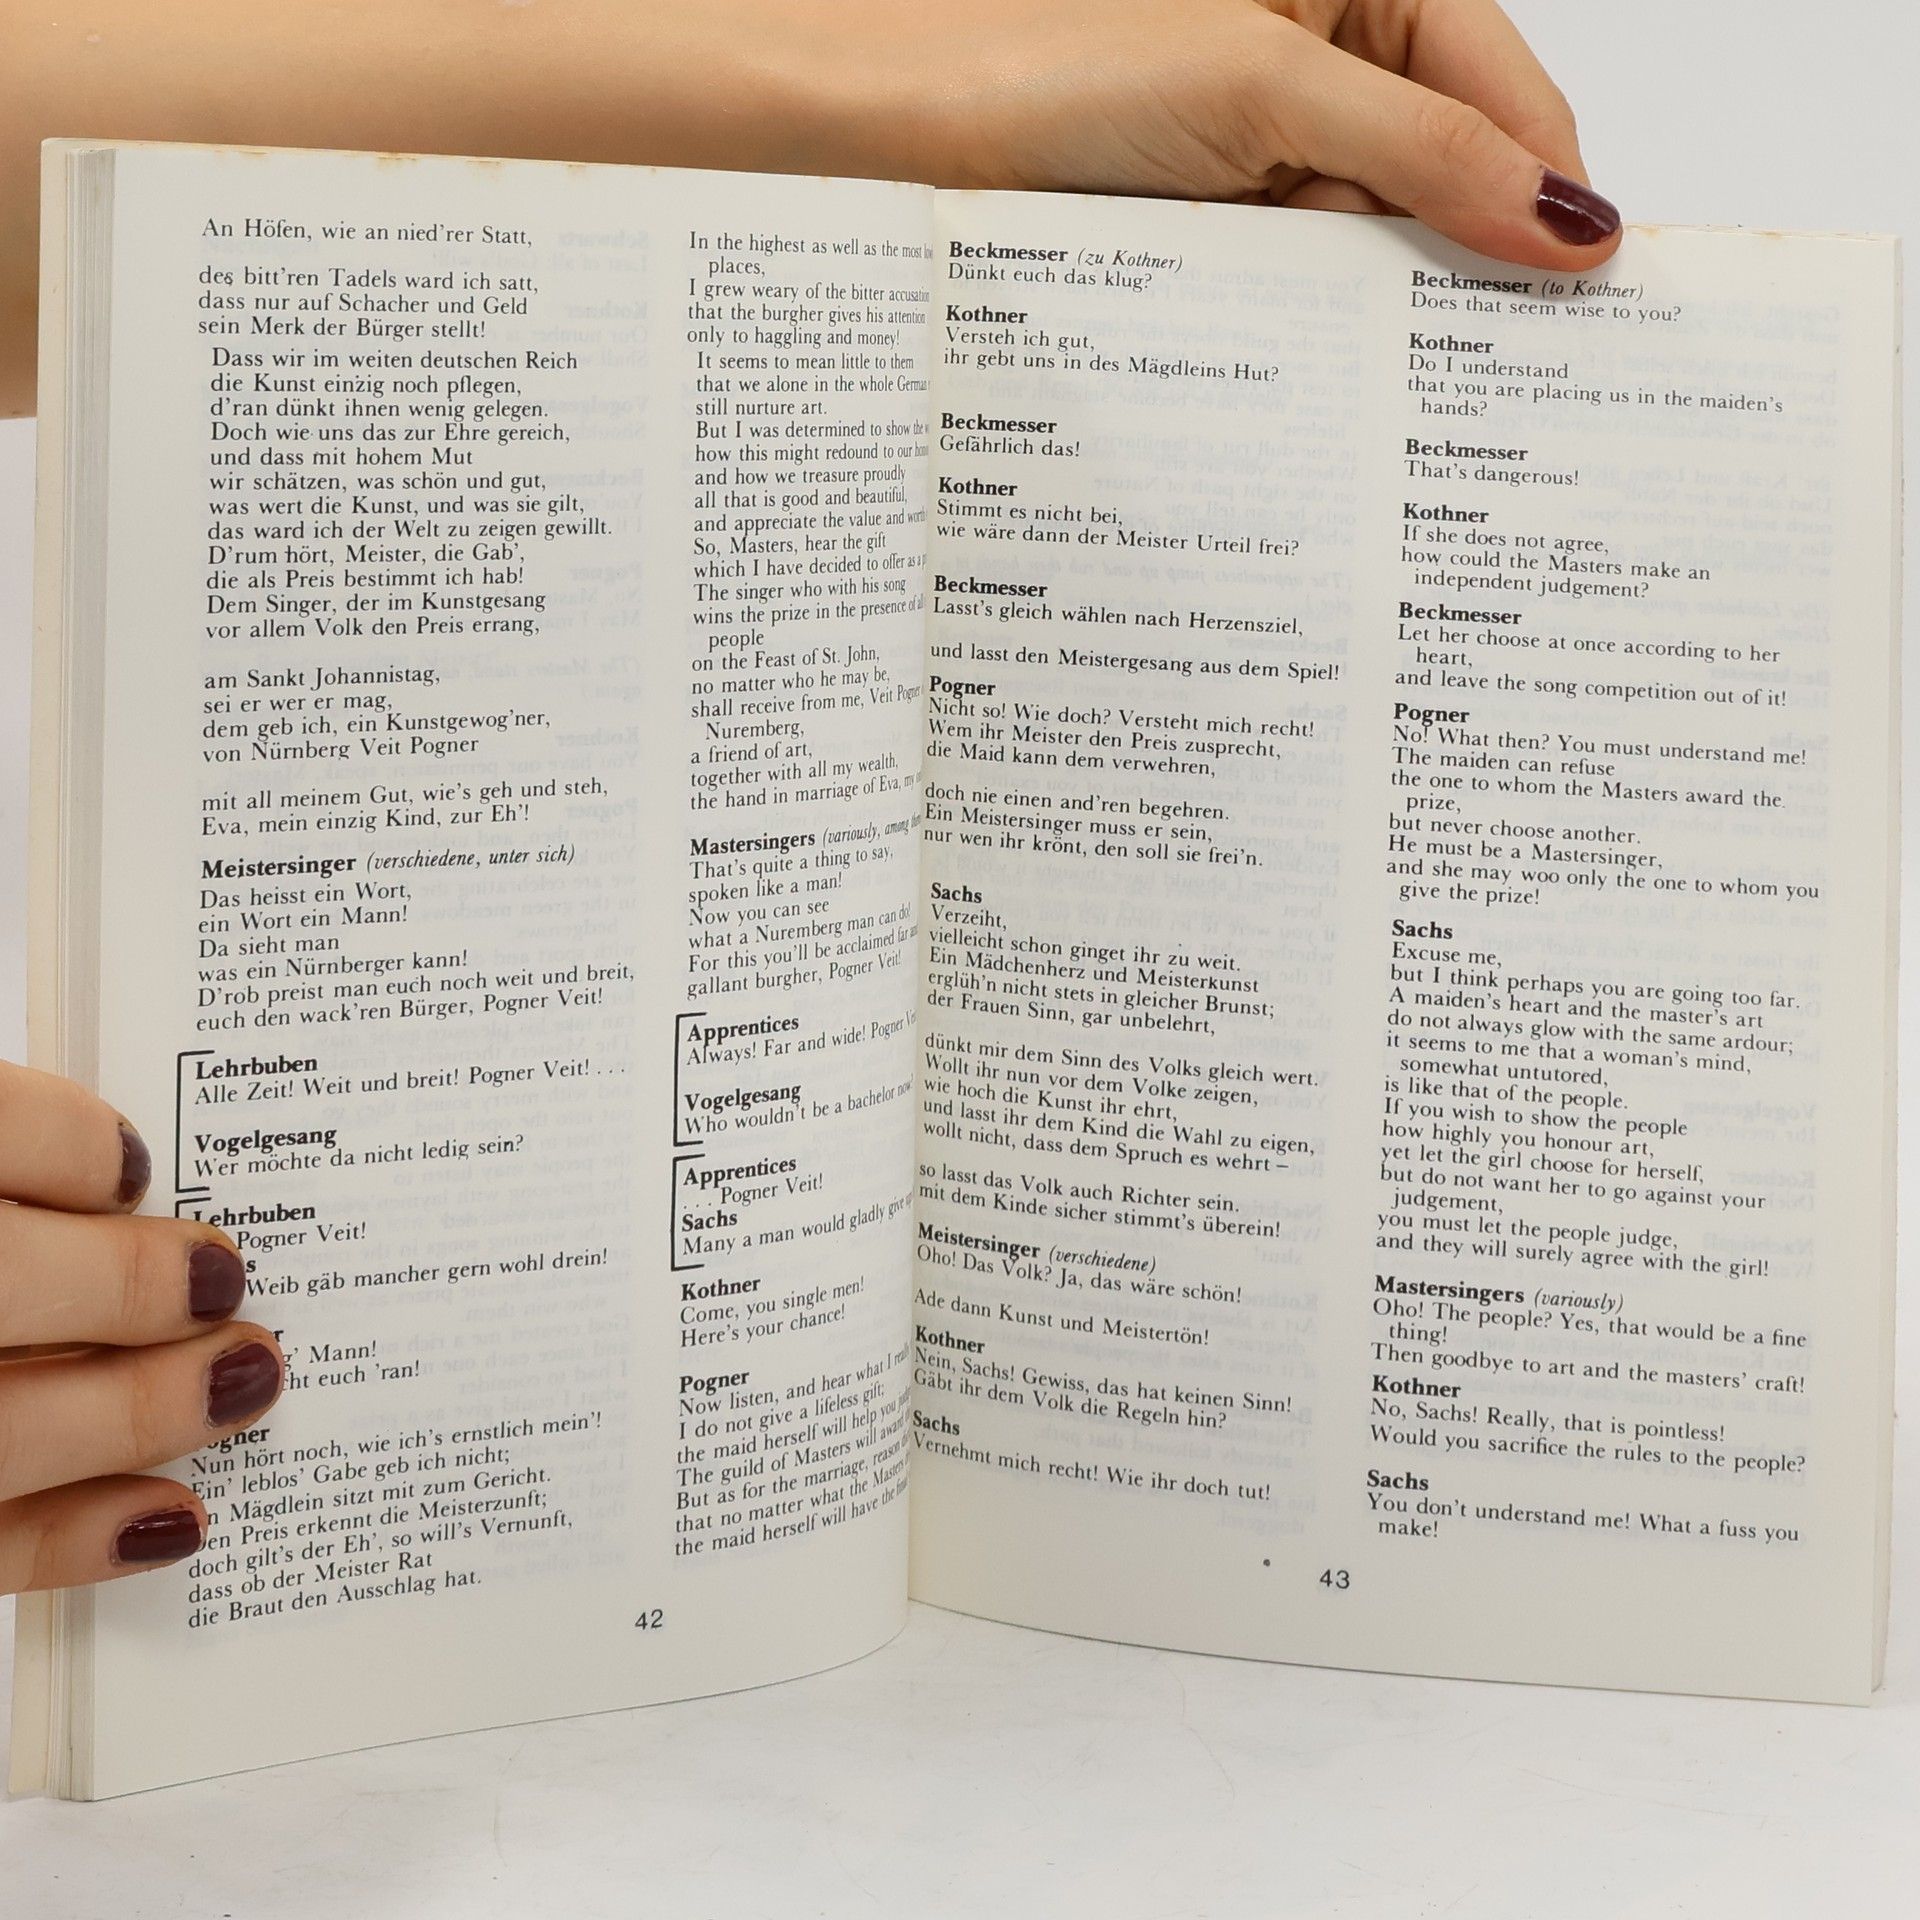 An Höfen, wie an nied'rer Statt,
des bitt'ren Tadels ward ich satt,
dass nur auf Schacher und Geld
sein Merk der Bürger stellt!
Dass wir im weiten deutschen Reich
die Kunst einzig noch pflegen,
d'ran dünkt ihnen wenig gelegen.
Doch wie uns das zur Ehre gereich,
und dass mit hohem Mut
wir schätzen, was schön und gut,
was wert die Kunst, und was sie gilt,
das ward ich der Welt zu zeigen gewillt.
D'rum hört, Meister, die Gab',
die als Preis bestimmt ich hab!
Dem Singer, der im Kunstgesang
vor allem Volk den Preis errang,
am Sankt Johannistag,
sei er wer er mag,
dem geb ich, ein Kunstgewog'ner,
von Nürnberg Veit Pogner
mit all meinem Gut, wie's geh und steh,
Eva, mein einzig Kind, zur Eh'!
Meistersinger (verschiedene, unter sich)
Das heisst ein Wort,
ein Wort ein Mann!
Da sieht man
was ein Nürnberger kann!
D'rob preist man euch noch weit und breit,
euch den wack'ren Bürger, Pogner Veit!
Lehrbuben
Alle Zeit! Weit und breit! Pogner Veit! . . .
Vogelgesang
Wer möchte da nicht ledig sein?
Lehrbuben
Pogner Veit!
Weib gäb mancher gern wohl drein!
Mann!
euch 'ran!
Pogner
Nun hört noch, wie ich's ernstlich mein'!
Ein' leblos' Gabe geb ich nicht;
Mägdlein sitzt mit zum Gericht.
Den Preis erkennt die Meisterzunft;
doch gilt's der Eh', so will's Vernunft,
dass ob der Meister Rat
die Braut den Ausschlag hat.
In the highest as well as the most
places,
I grew weary of the bitter accusation
that the burgher gives his attention
only to haggling and money!
It seems to mean little to them
that we alone in the whole German
still nurture art.
But I was determined to show the
how this might redound to our
and how we treasure proudly
all that is good and beautiful,
and appreciate the value and worth
So, Masters, hear the gift
which I have decided to offer as a
The singer who with his song
wins the prize in the presence of
people
on the Feast of St. John,
no matter who he may be,
shall receive from me, Veit Pogner
Nuremberg,
a friend of art,
together with all my wealth,
the hand in marriage of Eva, my
Mastersingers (variously, among
That's quite a thing to say,
spoken like a man!
Now you can see
what a Nuremberg man can do!
For this you'll be acclaimed far
gallant burgher, Pogner Veit!
Apprentices
Always! Far and wide! Pogner
Vogelgesang
Who wouldn't be a bachelor now?
Apprentices
. . . Pogner Veit!
Sachs
Many a man would gladly give
Kothner
Come, you single men!
Here's your chance!
Pogner
Now listen, and hear what I
I do not give a lifeless gift;
the maid herself will help you
The guild of Masters will award
But as for the marriage, reason
that no matter what the Masters
the maid herself will have the
42
Beckmesser (zu Kothner)
Dünkt euch das klug?
Kothner
Versteh ich gut,
ihr gebt uns in des Mägdleins Hut?
Beckmesser
Gefährlich das!
Kothner
Stimmt es nicht bei,
wie wäre dann der Meister Urteil frei?
Beckmesser
Lasst's gleich wählen nach Herzensziel,
und lasst den Meistergesang aus dem Spiel!
Pogner
Nicht so! Wie doch? Versteht mich recht!
Wem ihr Meister den Preis zusprecht,
die Maid kann dem verwehren,
doch nie einen and'ren begehren.
Ein Meistersinger muss er sein,
nur wen ihr krönt, den soll sie frei'n.
Sachs
Verzeiht,
vielleicht schon ginget ihr zu weit.
Ein Mädchenherz und Meisterkunst
erglüh'n nicht stets in gleicher Brunst;
der Frauen Sinn, gar unbelehrt,
dünkt mir dem Sinn des Volks gleich wert.
Wollt ihr nun vor dem Volke zeigen,
wie hoch die Kunst ihr ehrt,
und lasst ihr dem Kind die Wahl zu eigen,
wollt nicht, dass dem Spruch es wehrt –
so lasst das Volk auch Richter sein.
mit dem Kinde sicher stimmt's überein!
Meistersinger (verschiedene)
Oho! Das Volk? Ja, das wäre schön!
Ade dann Kunst und Meistertön!
Kothner
Nein, Sachs! Gewiss, das hat keinen Sinn!
Gäbt ihr dem Volk die Regeln hin?
Sachs
Vernehmt mich recht! Wie ihr doch tut!
Beckmesser (to Kothner)
Does that seem wise to you?
Kothner
Do I understand
that you are placing us in the maiden's
hands?
Beckmesser
That's dangerous!
Kothner
If she does not agree,
how could the Masters make an
independent judgement?
Beckmesser
Let her choose at once according to her
heart,
and leave the song competition out of it!
Pogner
No! What then? You must understand me!
The maiden can refuse
the one to whom the Masters award the
prize,
but never choose another.
He must be a Mastersinger,
and she may woo only the one to whom you
give the prize!
Sachs
Excuse me,
but I think perhaps you are going too far.
A maiden's heart and the master's art
do not always glow with the same ardour;
it seems to me that a woman's mind,
somewhat untutored,
is like that of the people.
If you wish to show the people
how highly you honour art,
yet let the girl choose for herself,
but do not want her to go against your
judgement,
you must let the people judge,
and they will surely agree with the girl!
Mastersingers (variously)
Oho! The people? Yes, that would be a fine
thing!
Then goodbye to art and the masters' craft!
Kothner
No, Sachs! Really, that is pointless!
Would you sacrifice the rules to the people?
Sachs
You don't understand me! What a fuss you
make!
43